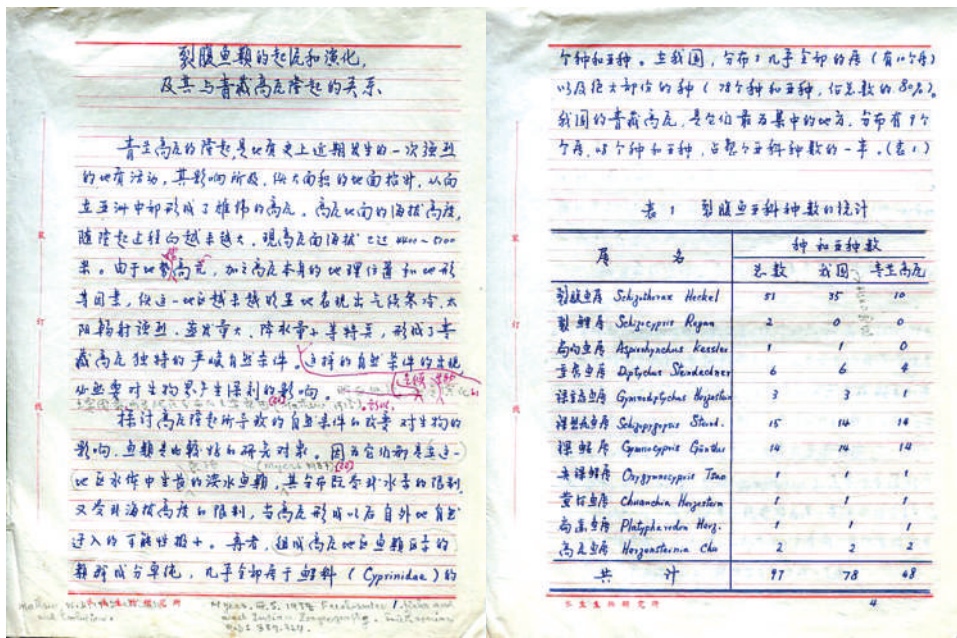 裂腹鱼类的起源和演化,
及其与青藏高原隆起的关系
青藏高原的隆起,是地质史上近期发生的一次强烈
的地质活动,其影响所及,使大面积的地面抬升,从而
在亚洲中部形成了雄伟的高原。高原地面的海拔高度,
随隆起过程而越来越大,现高原面海拔已达4400~5000
米。由于地势高亢,加之高原本身的地理位置和地形
等因素,使这一地区越来越明显地表现出气候寒冷、太
阳辐射强烈、蒸发量大、降水量小等特点,形成了青
藏高原独特的严峻自然条件。这样的自然条件的出现
必然要对生物界产生深刻的影响。
探讨高原隆起所导致的自然条件的改变对生物的
影响,鱼类是比较好的研究对象。因为它们都是在这一
(Myers 1937)
地区水体中生长的淡水鱼类,其分布既受到水系的限制,
又受到海拔高度的限制,当高原形成以后自外地自然
进入的可能性极小。再者,组成高地区鱼类区系的
类群成分单纯,几乎全部属于鲤科(Cyprinidae)的
Myers, G. S. 1938
个种和亚种。在我国,分布了几乎全部的属(有10个属)
以及绝大部份的种(78个种和亚种,佔总数的80%)。
我国的青藏高原,是它们最为集中的地方,分布有9个
个属,48个种和亚种,占整个亚科种数的一半。(表1.)
表1 裂腹鱼亚科种数的统计
属 名 种和亚种数
总数 我国 青藏高原
裂腹鱼属 Schizothorax Heckel 51 35 10
裂鲤属 Schizocypris Regan 2 0 0
扁吻鱼属 Aspiorhynchus Kessler 1 1 0
重唇鱼属 Diptychus Steindachner 6 6 4
裸重唇鱼属 Gymnodiptychus Herzenstein 3 3 1
裸裂尻鱼属 Schizopygopsis Steind. 15 14 14
裸鲤属 Gymnocypris Günther 14 14 14
尖裸鲤属 Oxygymnocypris Tsao 1 1 1
黄河鱼属 Chuanchia Herzenstein 1 1 1
扁咽鱼属 Platypharodon Herz. 1 1 1
高原鱼属 Herzensteinia Chu 2 2 2
共 计 97 78 48
水生生物研究所
4
装
订
线